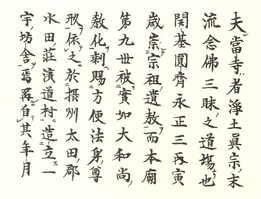 夫當寺者浄土眞宗末
流念佛三昧之道場也
開基圓齊永正三丙寅
歳宗宗祖遺教而本廟
第九世被實如大和尚
教化剩賜方便法身尊
形依之於摂州太田郡
水田荘濱道村造立一
宇坊舎焉再自其年月